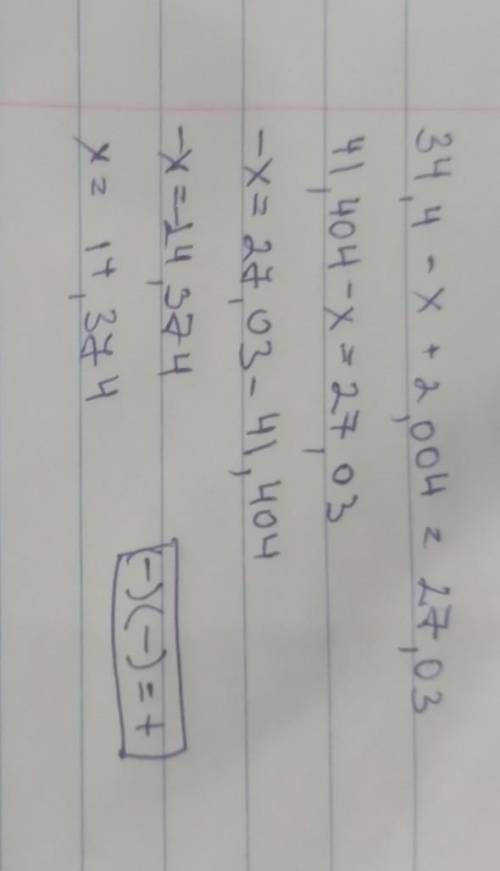 34,4 - x + 2,004 = 27,03
41,404 - x = 27,03
-x = 27,03 - 41,404
-x = -14,374
x = 14,374
(-)(-) = +